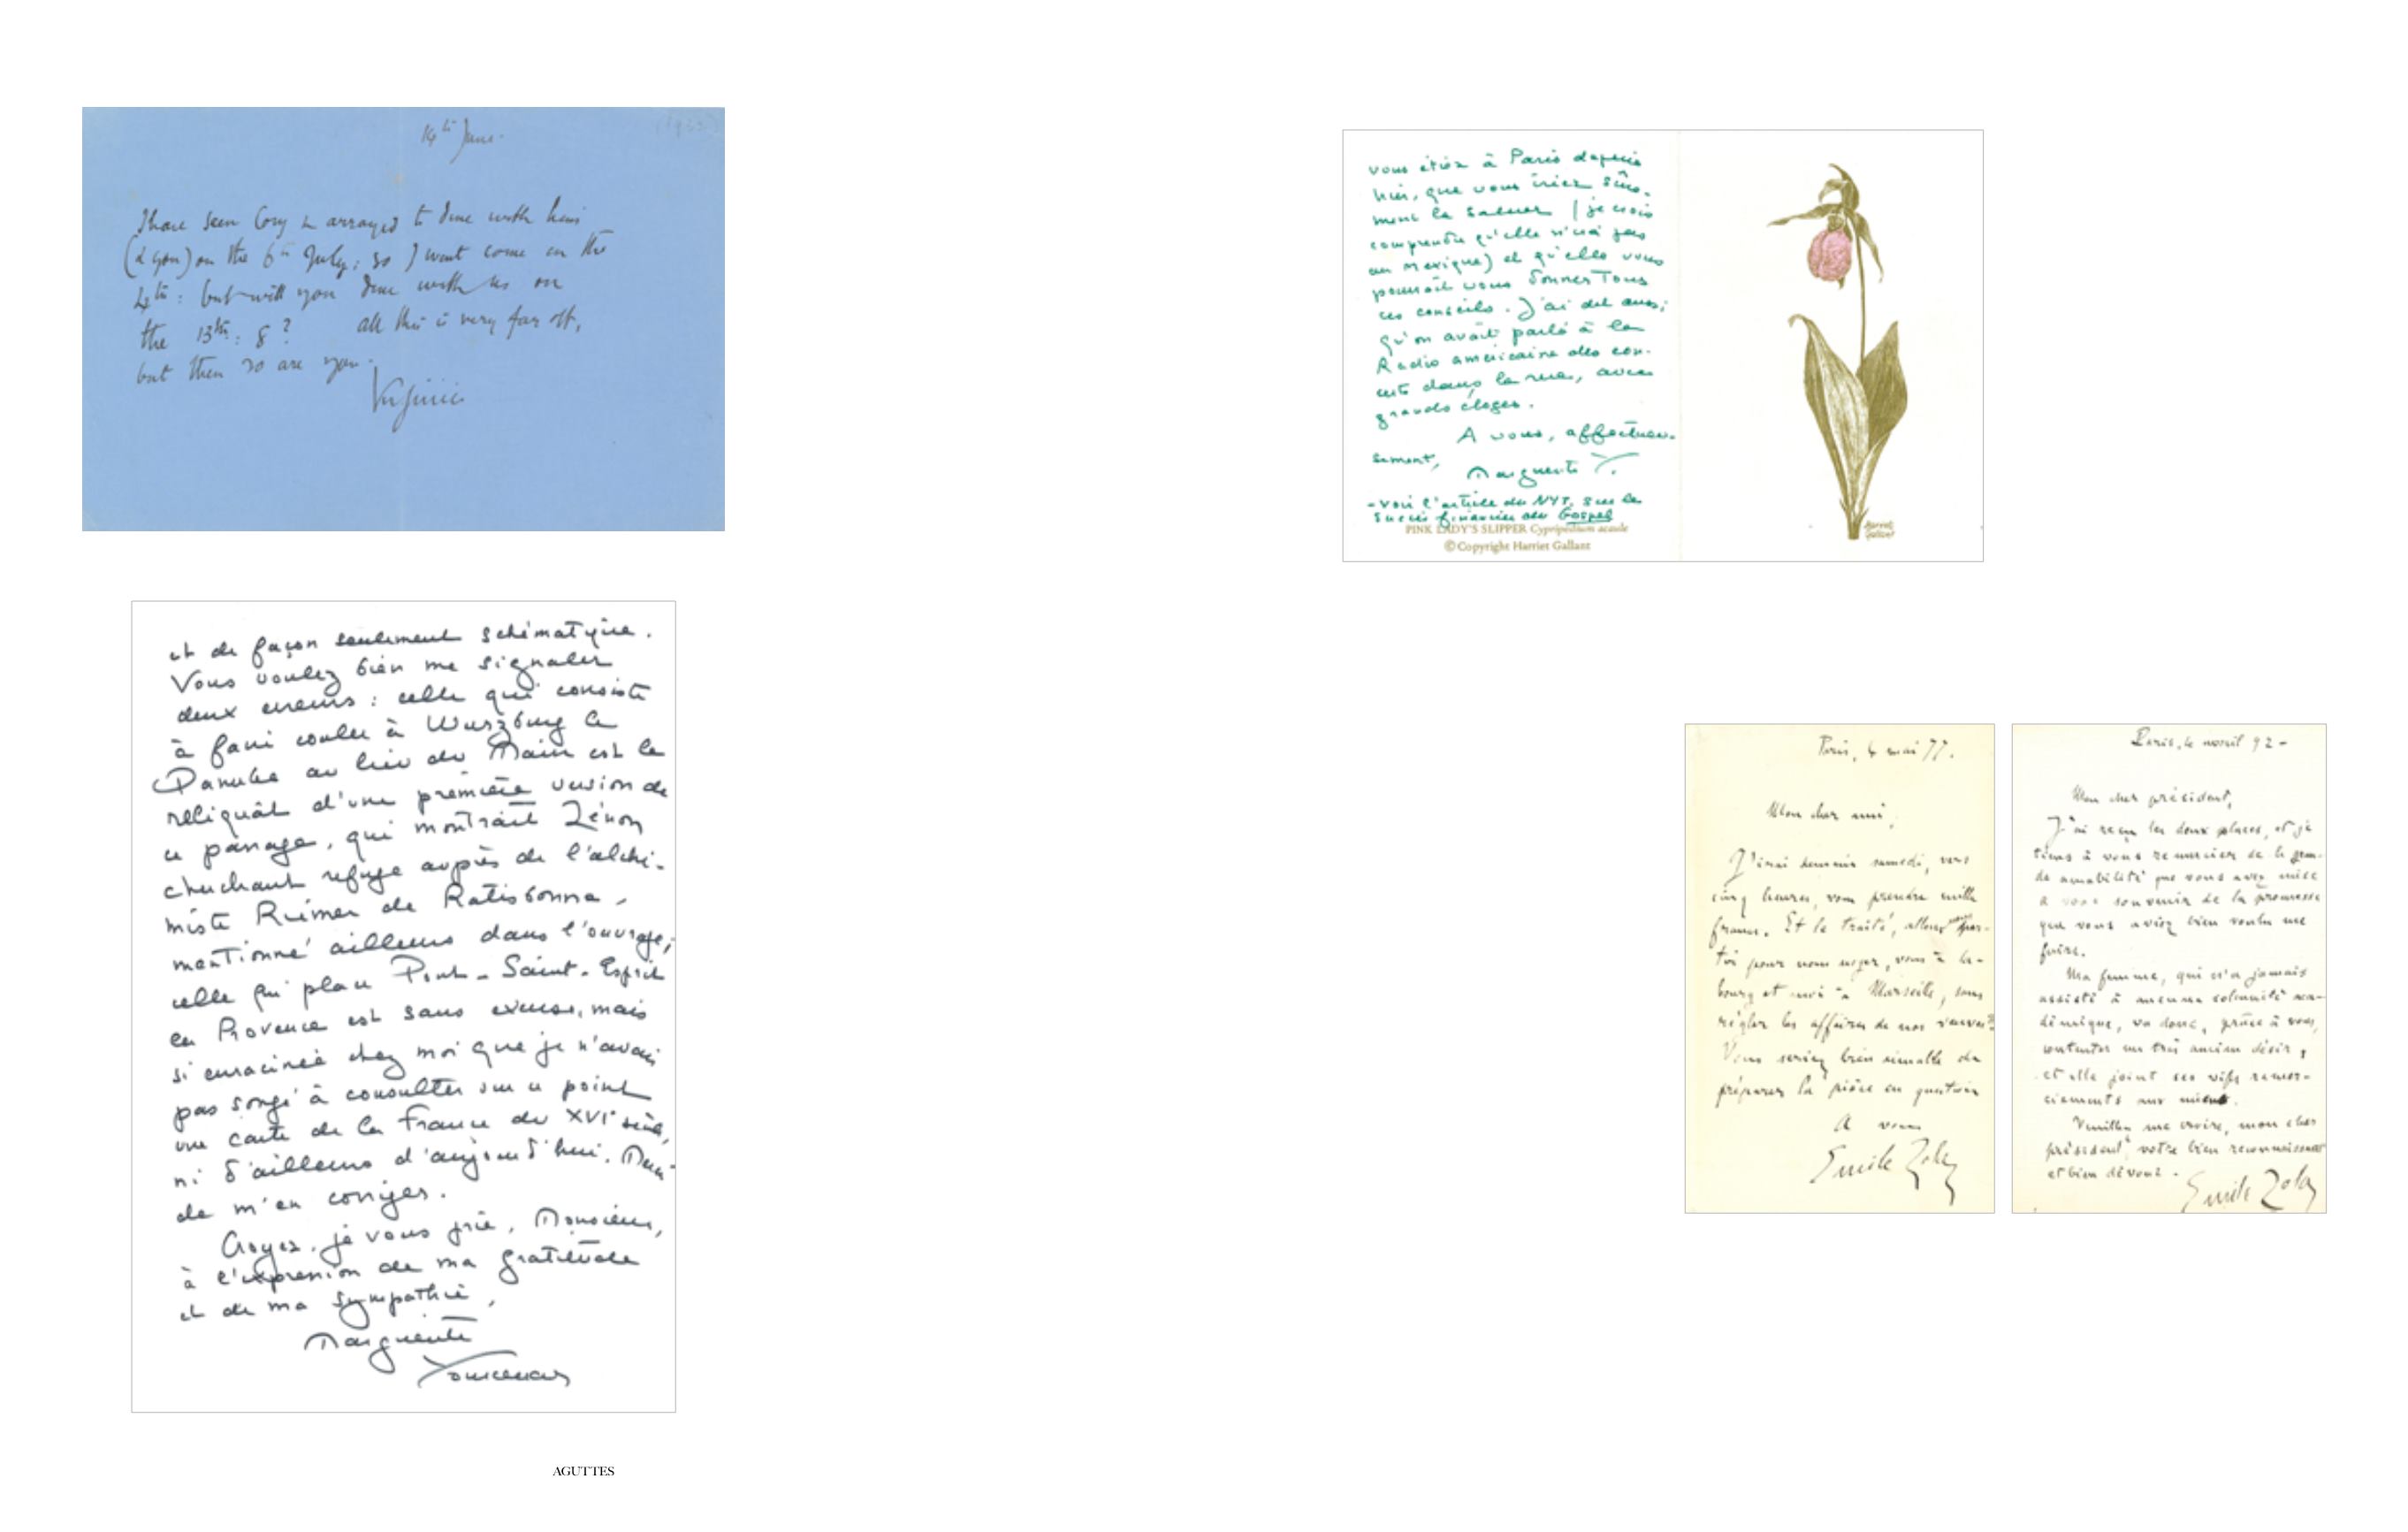 14th June.
I have seen Cory & arranged to dine with him
(& you) on the 6th July; so I wont come on the
4th: but will you dine with us on
the 13th: 8? All this is very far off,
but then so are you.
Virginia
et de façon seulement schématique.
Vous voulez bien me signaler
deux erreurs : celle qui consiste
à faire couler à Wurzburg le
Danube au lieu du Main est le
reliquat d'une première version de
ce passage, qui montrait Zénon
cherchant refuge auprès de l'alchi-
miste Riemer de Ratisbonne,
mentionné ailleurs dans l'ouvrage;
celle qui place Pont-Saint-Esprit
en Provence est sans excuse, mais
si enracinée chez moi que je n'avais
pas songé à consulter sur ce point
une carte de la France du XVIe siècle,
ni d'ailleurs d'aujourd'hui.
de m'en corriger.
Croyez, je vous prie, Monsieur,
à l'expression de ma gratitude
et de ma sympathie,
Marguerite
Yourcenar
AGUTTES
vous étiez à Paris depuis
hier, que vous iriez sûre-
ment la saluer (je crois
comprendre qu'elle n'ira pas
au Mexique) et qu'elle vous
pourrait vous donner tous
ces conseils. J'ai dit aussi
qu'on avait parlé à la
Radio américaine des con-
certs dans la rue, avec
grands éloges.
A vous, affectueu-
sement,
Marguerite Y.
- Voir l'article du NYT, sur le
succès financier du Gospel
PINK LADY'S SLIPPER Cypripedium acaule
© Copyright Harriet Gallant
Harriet
Gallant
Paris, 4 mai 77.
Mon cher ami,
J'irai demain samedi, vers
cinq heures, vous prendre mille
francs. Et le traité, allons-nous par-
tir pour nous
et moi à Marseille, sans
régler les affaires de nos
Vous seriez bien aimable de
préparer la pièce en question
A vous
Emile Zola
Paris, 92 -
Mon cher président,
J'ai reçu les deux places, et je
tiens à vous remercier de la gran-
de amabilité que vous avez mise
à vous souvenir de la promesse
que vous aviez bien voulu me
faire.
Ma femme, qui n'a jamais
assisté à aucune solennité aca-
démique, va donc, grâce à vous,
contenter un très ancien désir,
et elle joint ses vifs remer-
ciements aux miens.
Veuillez me croire, mon cher
président, votre bien reconnaissant
et bien dévoué.
Emile Zola